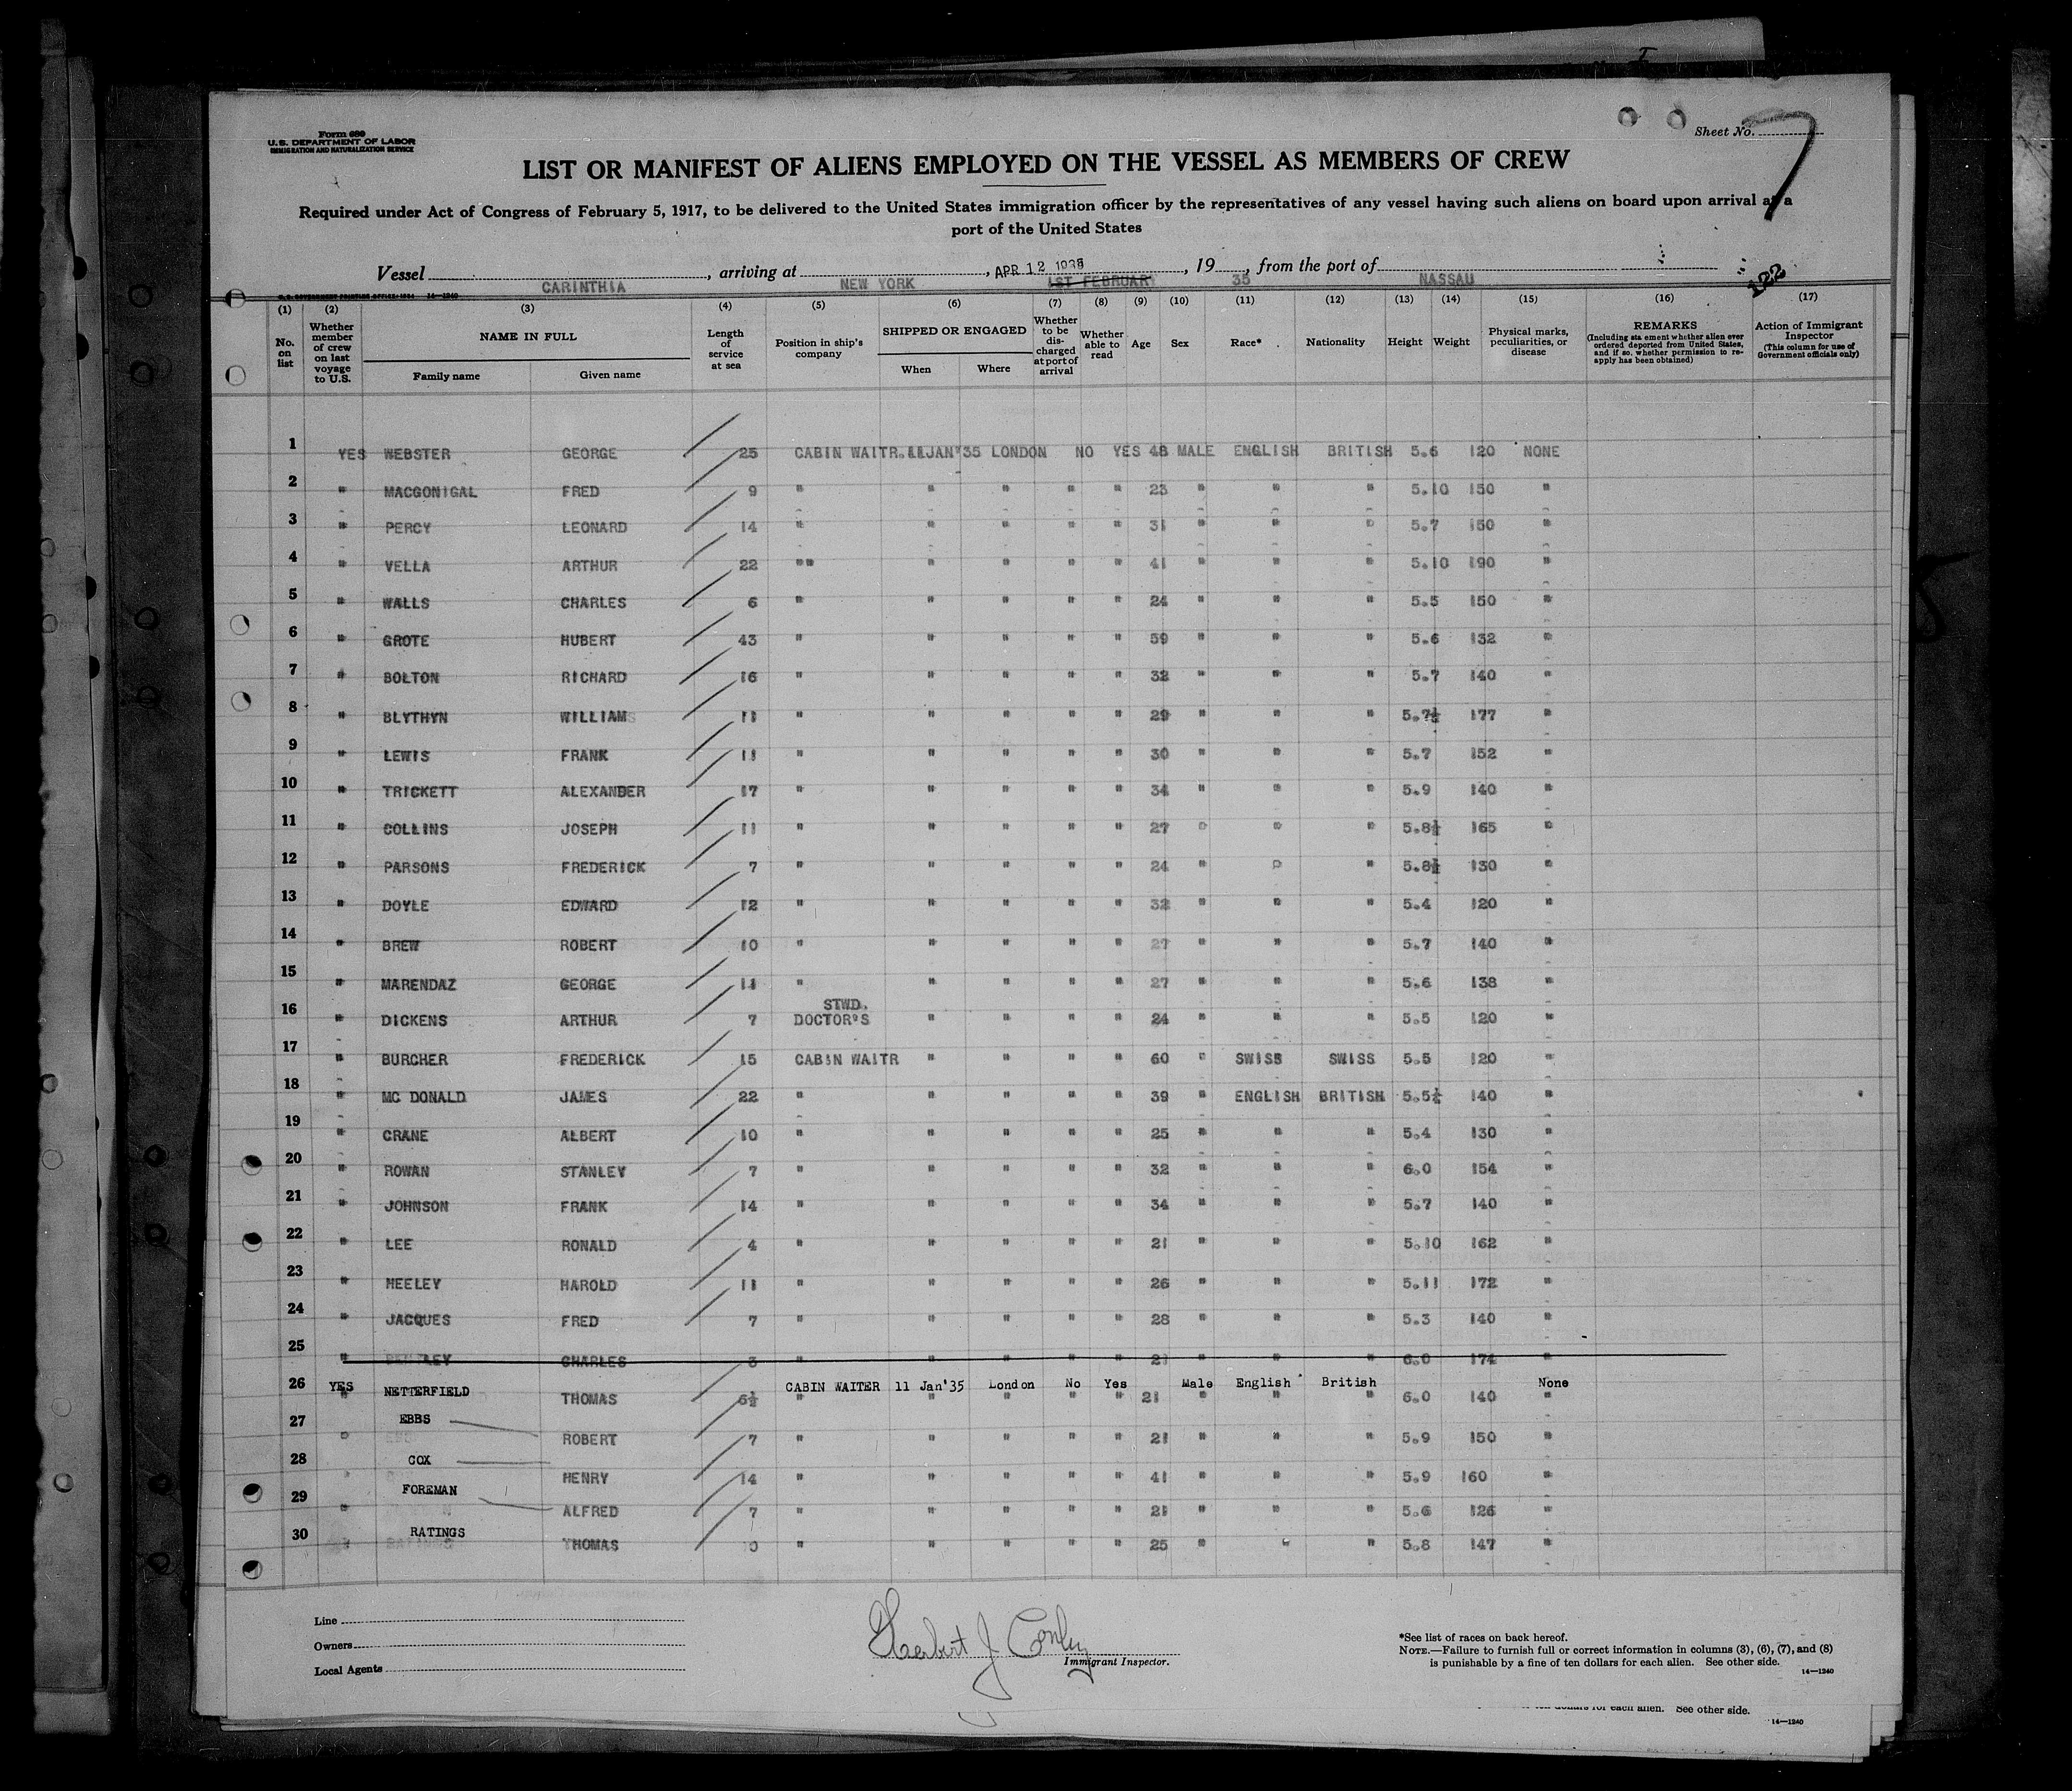 Form 689
U.S. DEPARTMENT OF LABOR
IMMIGRATION AND NATURALIZATION SERVICE
Sheet No. 7
LIST OR MANIFEST OF ALIENS EMPLOYED ON THE VESSEL AS MEMBERS OF CREW
Required under Act of Congress of February 5, 1917, to be delivered to the United States immigration officer by the representatives of any vessel having such aliens on board upon arrival at a
port of the United States
Vessel CARINTHIA, arriving at NEW YORK, APR 12 1935 1ST FEBRUARY, 19 35, from the port of NASSAU
122
U.S. GOVERNMENT PRINTING OFFICE: 1934 14—1240
(1) (2) (3) (4) (5) (6) (7) (8) (9) (10) (11) (12) (13) (14) (15) (16) (17)
No. on list
Whether member of crew on last voyage to U.S.
NAME IN FULL
Family name
Given name
Length of service at sea
Position in ship's company
SHIPPED OR ENGAGED
When
Where
Whether to be discharged at port of arrival
Whether able to read
Age
Sex
Race*
Nationality
Height
Weight
Physical marks, peculiarities, or disease
REMARKS
(Including statement whether alien ever ordered deported from United States, and if so, whether permission to reapply has been obtained)
Action of Immigrant Inspector
(This column for use of Government officials only)
1 YES WEBSTER GEORGE 25 CABIN WAITR. 11JAN'35 LONDON NO YES 48 MALE ENGLISH BRITISH 5.6 120 NONE
2 " MACGONIGAL FRED 9 " " " " " 23 " " " 5.10 150 "
3 " PERCY LEONARD 14 " " " " " 31 " " " 5.7 150 "
4 " VELLA ARTHUR 22 "" " " " " 41 " " " 5.10 190 "
5 " WALLS CHARLES 6 " " " " " 24 " " " 5.5 150 "
6 " GROTE HUBERT 43 " " " " " 59 " " " 5.6 132 "
7 " BOLTON RICHARD 16 " " " " " 32 " " " 5.7 140 "
8 " BLYTHYN WILLIAMS 11 " " " " " 29 " " " 5.7½ 177 "
9 " LEWIS FRANK 11 " " " " " 30 " " " 5.7 152 "
10 " TRICKETT ALEXANDER 17 " " " " " 34 " " " 5.9 140 "
11 " COLLINS JOSEPH 11 " " " " " 27 " " " 5.8½ 165 "
12 " PARSONS FREDERICK 7 " " " " " 24 " " " 5.8½ 130 "
13 " DOYLE EDWARD 12 " " " " " 32 " " " 5.4 120 "
14 " BREW ROBERT 10 " " " " " 27 " " " 5.7 140 "
15 " MARENDAZ GEORGE 11 " " " " " 27 " " " 5.6 138 "
16 " DICKENS ARTHUR 7 STWD. DOCTOR'S " " " " 24 " " " 5.5 120 "
17 " BURCHER FREDERICK 15 CABIN WAITR " " " " 60 " SWISS SWISS 5.5 120 "
18 " MC DONALD JAMES 22 " " " " " 39 " ENGLISH BRITISH 5.5½ 140 "
19 " CRANE ALBERT 10 " " " " " 25 " " " 5.4 130 "
20 " ROWAN STANLEY 7 " " " " " 32 " " " 6.0 154 "
21 " JOHNSON FRANK 14 " " " " " 34 " " " 5.7 140 "
22 " LEE RONALD 4 " " " " " 21 " " " 5.10 162 "
23 " HEELEY HAROLD 11 " " " " " 26 " " " 5.11 172 "
24 " JACQUES FRED 7 " " " " " 28 " " " 5.3 140 "
25 " CHARLES 3 " " " " " 21 " " " 6.0 174 "
26 YES NETTERFIELD THOMAS 6½ CABIN WAITER 11 Jan'35 London No Yes 21 Male English British 6.0 140 None
27 " EBBS ROBERT 7 " " " " " 21 " " " 5.9 150 "
28 " COX HENRY 14 " " " " " 41 " " " 5.9 160 "
29 " FOREMAN ALFRED 7 " " " " " 21 " " " 5.6 126 "
30 RATINGS THOMAS " " " " " 25 " " " 5.8 147 "
Line
Owners
Local Agents
Herbert J Conley
Immigrant Inspector.
*See list of races on back hereof.
NOTE.—Failure to furnish full or correct information in columns (3), (6), (7), and (8)
is punishable by a fine of ten dollars for each alien. See other side.
14—1240
ten dollars for each alien. See other side.
14—1240